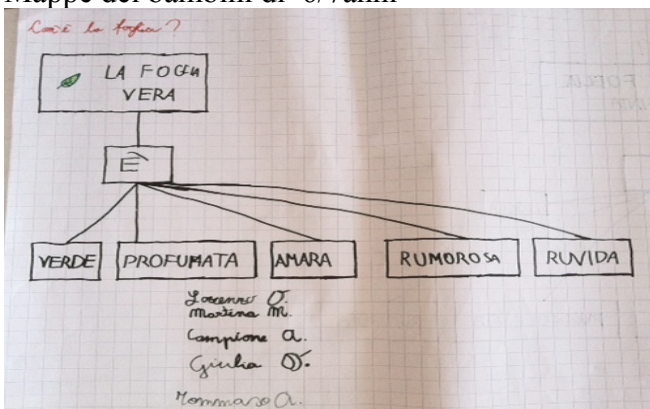 Mappe dei bambini di 6/7anni
Com'è la foglia?
LA FOGLIA
VERA
È
VERDE PROFUMATA AMARA RUMOROSA RUVIDA
Lorenzo O.
Martina M.
Campione A.
Giulia D.
Tommaso A.
FOGLIA